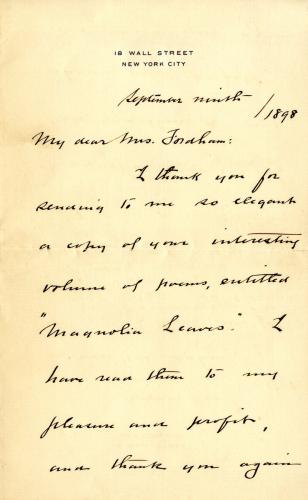 18 WALL STREET
NEW YORK CITY
September ninth
/1898
My dear Mrs. Fordham:
I thank you for
sending to me so elegant
a copy of your interesting
volume of poems, entitled
"Magnolia Leaves." I
have read them to my
pleasure and profit,
and thank you again